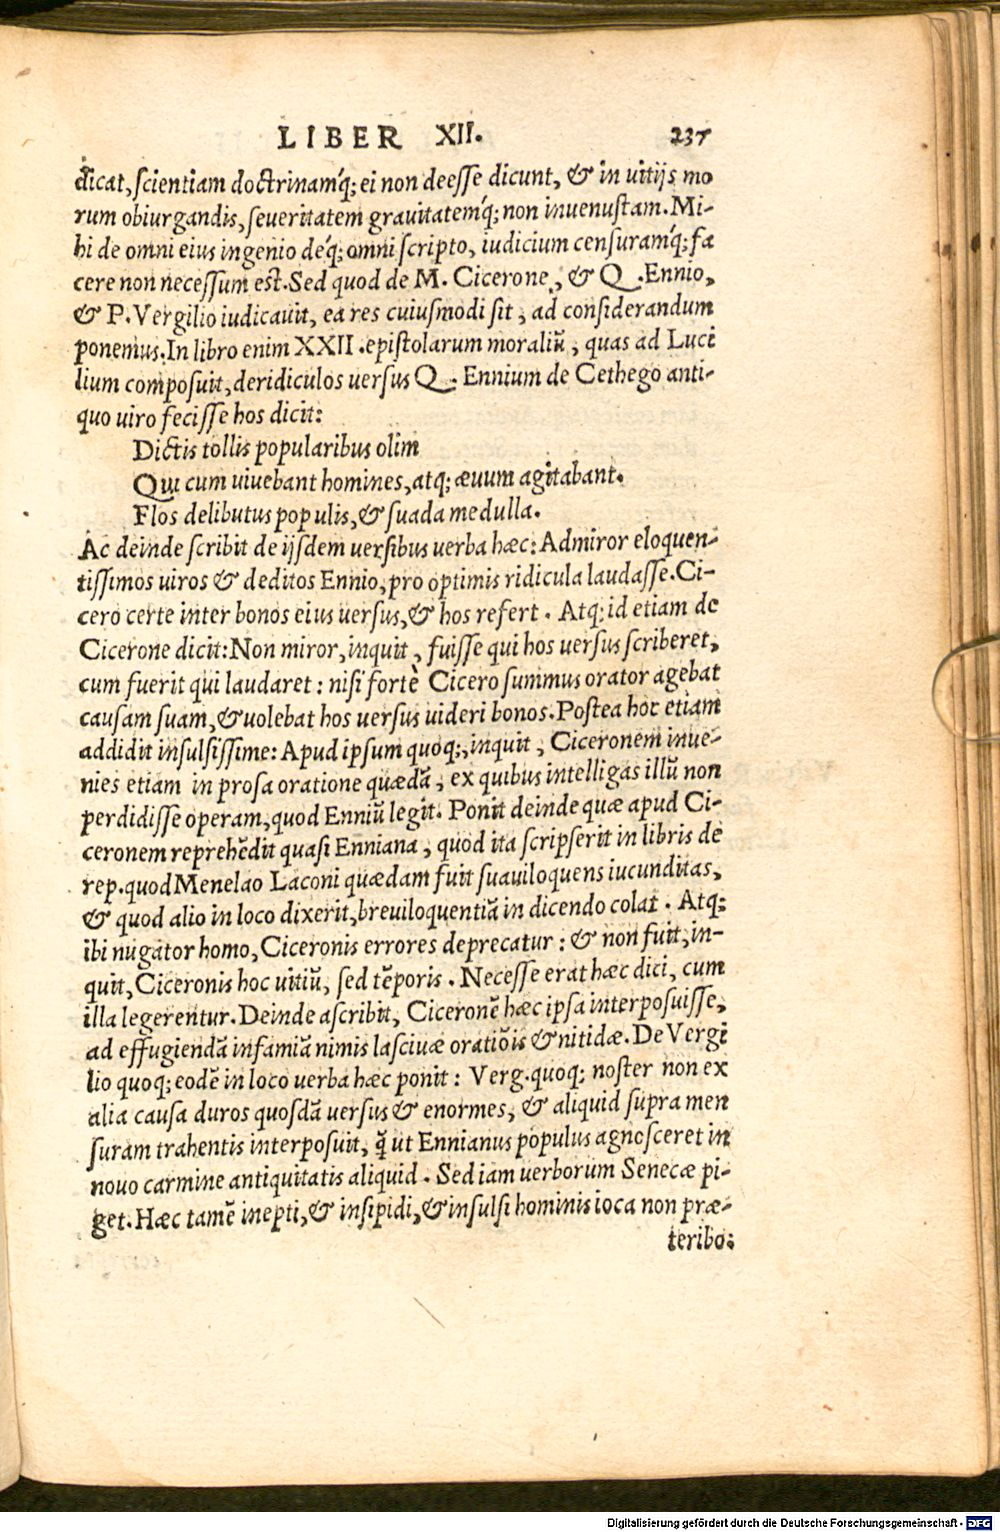 LIBER XII. 235
dicat, scientiam doctrinamq́; ei non deesse dicunt, & in uitijs mo
rum obiurgandis, seueritatem grauitatemq́; non inuenustam. Mi-
hi de omni eius ingenio deq́; omni scripto, iudicium censuramq́; fa
cere non necessum est. Sed quod de M. Cicerone, & Q. Ennio,
& P. Vergilio iudicauit, ea res cuiusmodi sit, ad considerandum
ponemus. In libro enim XXII. epistolarum moraliũ, quas ad Luci
lium composuit, deridiculos uersus Q. Ennium de Cethego anti-
quo uiro fecisse hos dicit:
Dictis tollis popularibus olim
Qui cum uiuebant homines, atq; æuum agitabant.
Flos delibutus populis, & suada medulla.
Ac deinde scribit de ijsdem uersibus uerba hæc: Admiror eloquen-
tissimos uiros & deditos Ennio, pro optimis ridicula laudasse. Ci-
cero certe inter bonos eius uersus, & hos refert. Atq; id etiam de
Cicerone dicit: Non miror, inquit, fuisse qui hos uersus scriberet,
cum fuerit qui laudaret: nisi fortè Cicero summus orator agebat
causam suam, & uolebat hos uersus uideri bonos. Postea hoc etiam
addidit insulsissime: Apud ipsum quoq;, inquit, Ciceronem inue-
nies etiam in prosa oratione quædã, ex quibus intelligas illũ non
perdidisse operam, quod Enniũ legit. Ponit deinde quæ apud Ci-
ceronem reprehẽdit quasi Enniana, quod ita scripserit in libris de
rep. quod Menelao Laconi quædam fuit suauiloquens iucunditas,
& quod alio in loco dixerit, breuiloquentiã in dicendo colat. Atq;
ibi nugator homo, Ciceronis errores deprecatur: & non fuit, in-
quit, Ciceronis hoc uitiũ, sed tẽporis. Necesse erat hæc dici, cum
illa legerentur. Deinde ascribit, Ciceronẽ hæc ipsa interposuisse,
ad effugiendã infamiã nimis lasciuæ oratiõis & nitidæ. De Vergi
lio quoq; eodẽ in loco uerba hæc ponit: Verg. quoq; noster non ex
alia causa duros quosdã uersus & enormes, & aliquid supra men
suram trahentis interposuit, q̃ ut Ennianus populus agnosceret in
nouo carmine antiquitatis aliquid. Sed iam uerborum Senecæ pi-
get. Hæc tamẽ inepti, & insipidi, & insulsi hominis ioca non præ-
teribo:
Digitalisierung gefördert durch die Deutsche Forschungsgemeinschaft - DFG